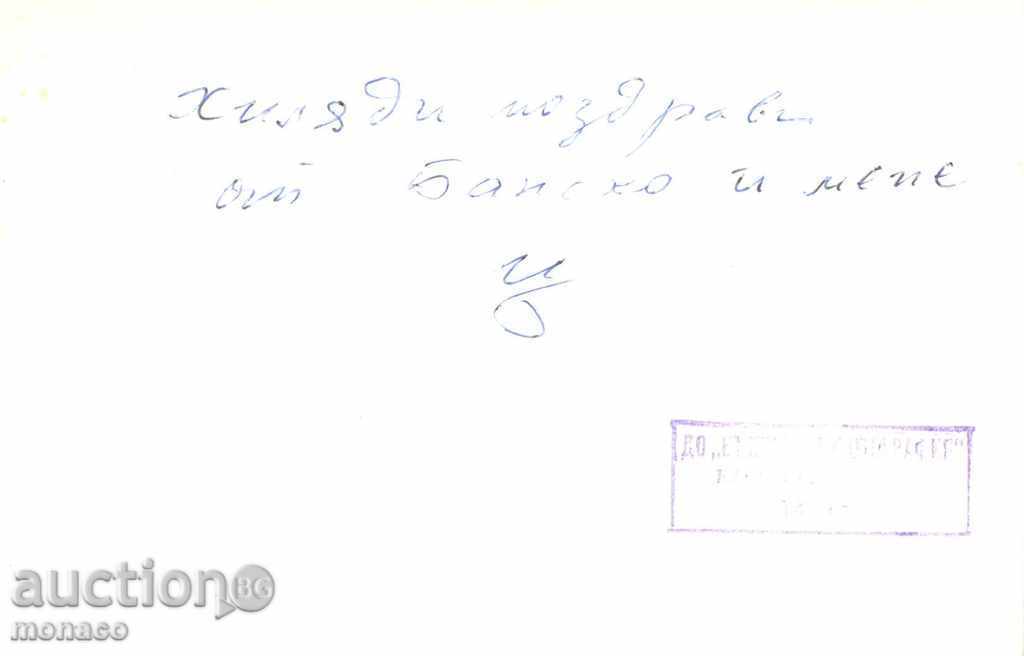 Хиляди поздрави
от Банско и мене
ДО
auction BG
monaco